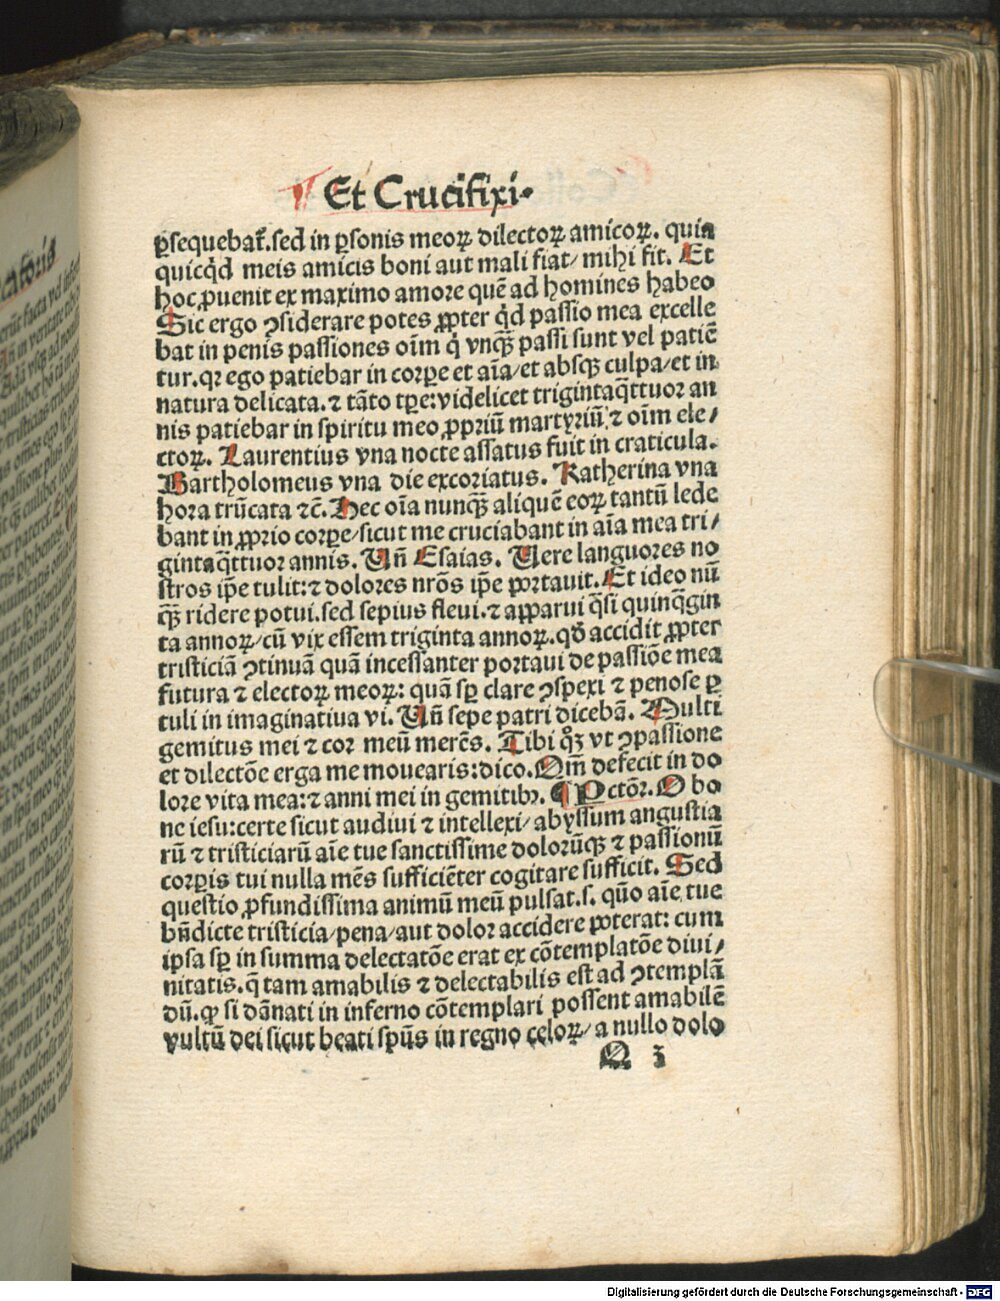 ¶ Et Crucifixi.
ꝑsequebaƭ. sed in ꝑsonis meoꝝ dilectoꝝ amicoꝝ. quia
quicq̇d meis amicis boni aut mali fiat/ mihi fit. Et
hoc ꝓuenit ex maximo amore quē ad homines habeo
Sic ergo ꝯsiderare potes ꝓpter q̇d passio mea excelle
bat in penis passiones oīm q̇ vnqꝫ̄ passi sunt vel patiē
tur. qꝛ ego patiebar in corꝑe et aīa/ et absqꝫ culpa/ et in
natura delicata. ⁊ tāto tꝑe: videlicet trigintaq̄ttuor an
nis patiebar in spiritu meo ꝓpriū martyriū ⁊ oīm ele/
ctoꝝ. Laurentius vna nocte assatus fuit in craticula.
Bartholomeus vna die excoriatus. Katherina vna
hora trūcata ⁊c̄. Hec oīa nunqꝫ̄ aliquē eoꝝ tantū lede
bant in ꝓprio corꝑe/ sicut me cruciabant in aīa mea tri/
gintaq̄ttuor annis. Vn̄ Esaias. Vere languores no
stros ip̄e tulit: ⁊ dolores nr̄os ip̄e portauit. Et ideo nū
qꝫ̄ ridere potui. sed sepius fleui. ⁊ apparui q̄si quinq̄gin
ta annoꝝ/ cū vix essem triginta annoꝝ. qd̄ accidit ꝓpter
tristiciā ꝯtinuā quā incessanter portaui de passiōe mea
futura ⁊ electoꝝ meoꝝ: quā sꝑ clare ꝯspexi ⁊ penose ꝑ
tuli in imaginatiua vi. Vn̄ sepe patri dicebā. Multi
gemitus mei ⁊ cor meū merēs. Tibi qͦꝫ vt ꝯpassione
et dilectōe erga me mouearis: dico. Qm̄ defecit in do
lore vita mea: ⁊ anni mei in gemitibꝰ. ¶ Pctōr. O bo
ne iesu: certe sicut audiui ⁊ intellexi/ abyssum angustia
rū ⁊ tristiciarū aīe tue sanctissime dolorūqꝫ ⁊ passionū
corꝑis tui nulla mēs sufficiēter cogitare sufficit. Sed
questio ꝓfundissima animū meū pulsat. s. quō aīe tue
bn̄dicte tristicia/ pena/ aut dolor accidere poterat: cum
ipsa sꝑ in summa delectatōe erat ex cōtemplatōe diui/
nitatis. q̄ tam amabilis ⁊ delectabilis est ad ꝯtemplā
dū. ꝙ si dānati in inferno cōtemplari possent amabilē
vultū dei sicut beati spūs in regno celoꝝ/ a nullo dolo
Q 3